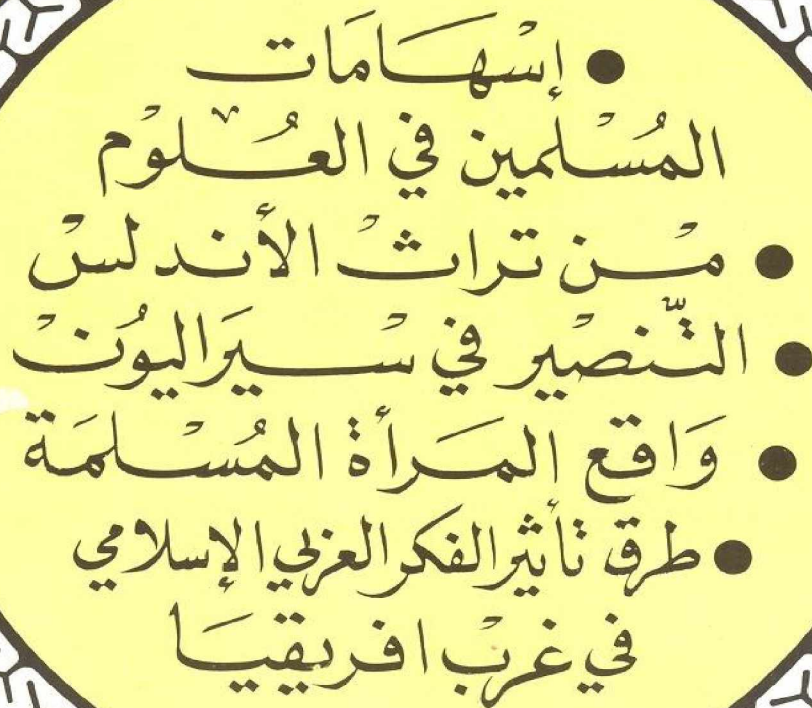 ● إسْهَامَات
المُسْلمين في العُلوْم
● مْن تراثْ الأندلسْ
● التّنصيْر في سْيَراليُونْ
● وَاقع المَرأة المُسْلمَة
● طرق تأثير الفكر العربي الإسلامي
في غربْ افريقيَا